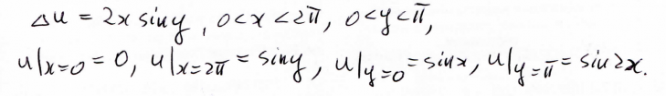 Δu = 2x siny, 0<x<2π, 0<y<π,
u|x=0 = 0, u|x=2π = siny, u|y=0 = sinx, u|y=π = sin2x.